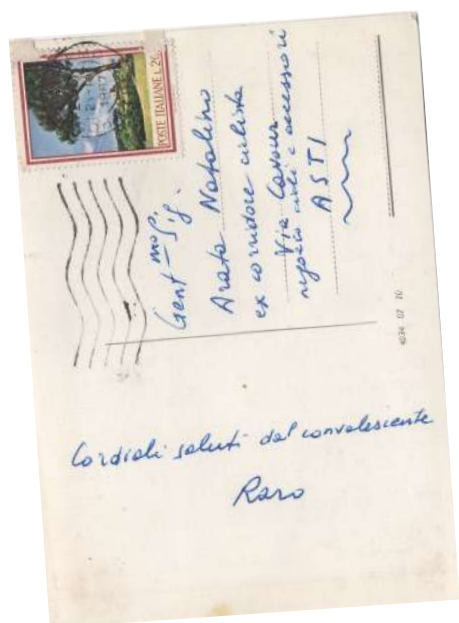 POSTE ITALIANE L. 20
Gent.mo Sig.
Arata Natalino
ex corridore ciclista
Via Cavour
negozio cicli e accessori
ASTI
4034 07 70
Cordiali saluti dal convalesciente
Raro